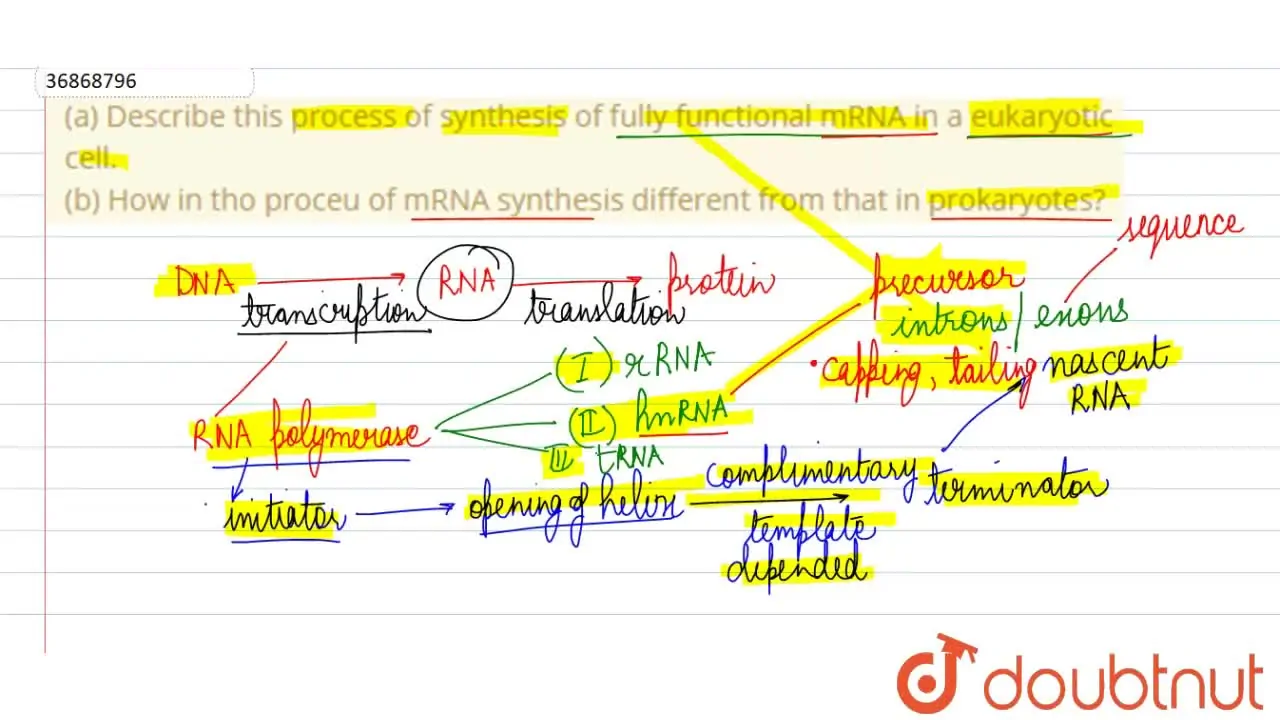 36868796
(a) Describe this process of synthesis of fully functional mRNA in a eukaryotic
cell.
(b) How in tho proceu of mRNA synthesis different from that in prokaryotes?
sequence
DNA RNA protein precursor
transcription translation introns / exons
(I) rRNA capping, tailing nascent
RNA
(II) hnRNA
RNA polymerase
III tRNA
complimentary terminator
initiator opening of helix
template
depended
doubtnut